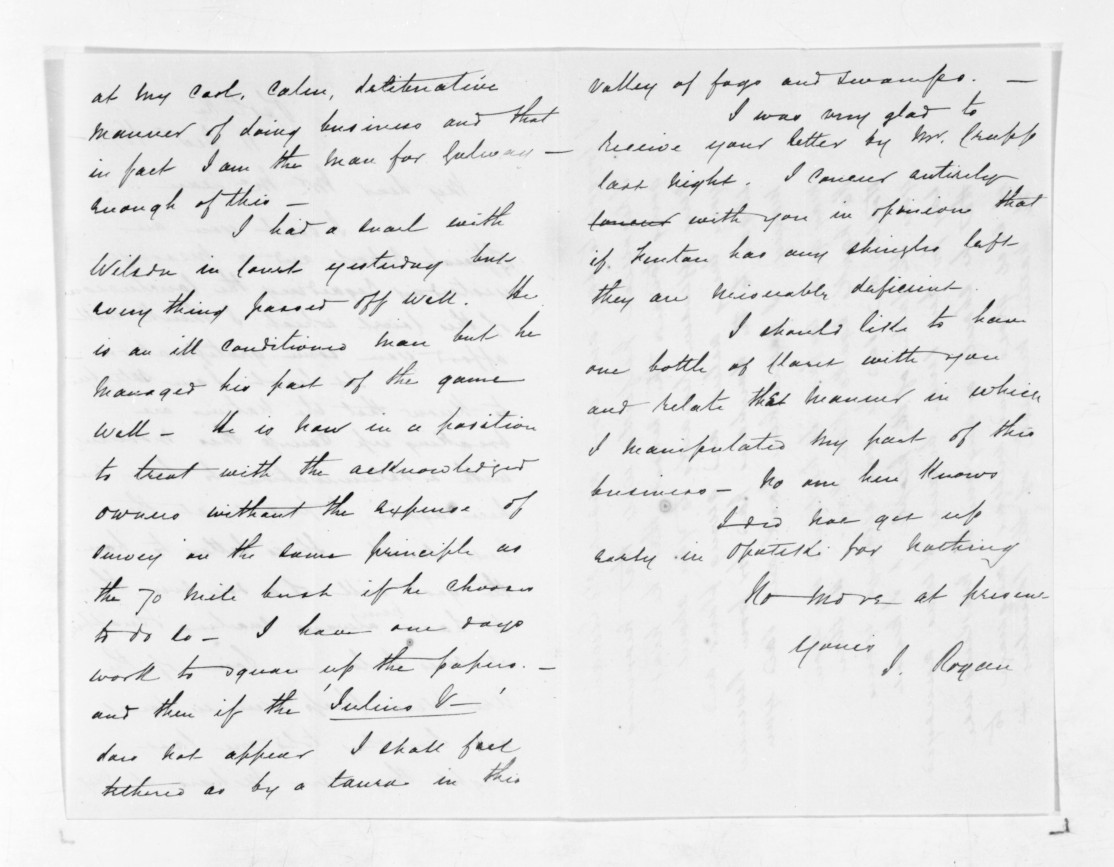 at my cool, calm, deliberative
manner of doing business and that
in fact I am the man for Galway —
enough of this —
I had a snarl with
Wilson in Court yesterday but
every thing passed off well. He
is an ill conditioned man but he
managed his part of the game
well — He is now in a position
to treat with the acknowledged
owners without the expense of
survey on the same principle as
the 70 mile bush if he chooses
to do so — I have one days
work to square up the papers. —
and then if the 'Julius V—'
does not appear I shall feel
tethered as by a in this
valley of fogs and swamps. —
I was very glad to
receive your letter by Mr. Crapp
last night. I concur entirely
concur with you in opinion that
if Fenton has any shingles left
they are miserably deficient.
I should like to have
one bottle of Claret with you
and relate the manner in which
I manipulated my part of this
business — No one here knows
I did not get up
early in for nothing
No more at present
Yours
J. Rogan